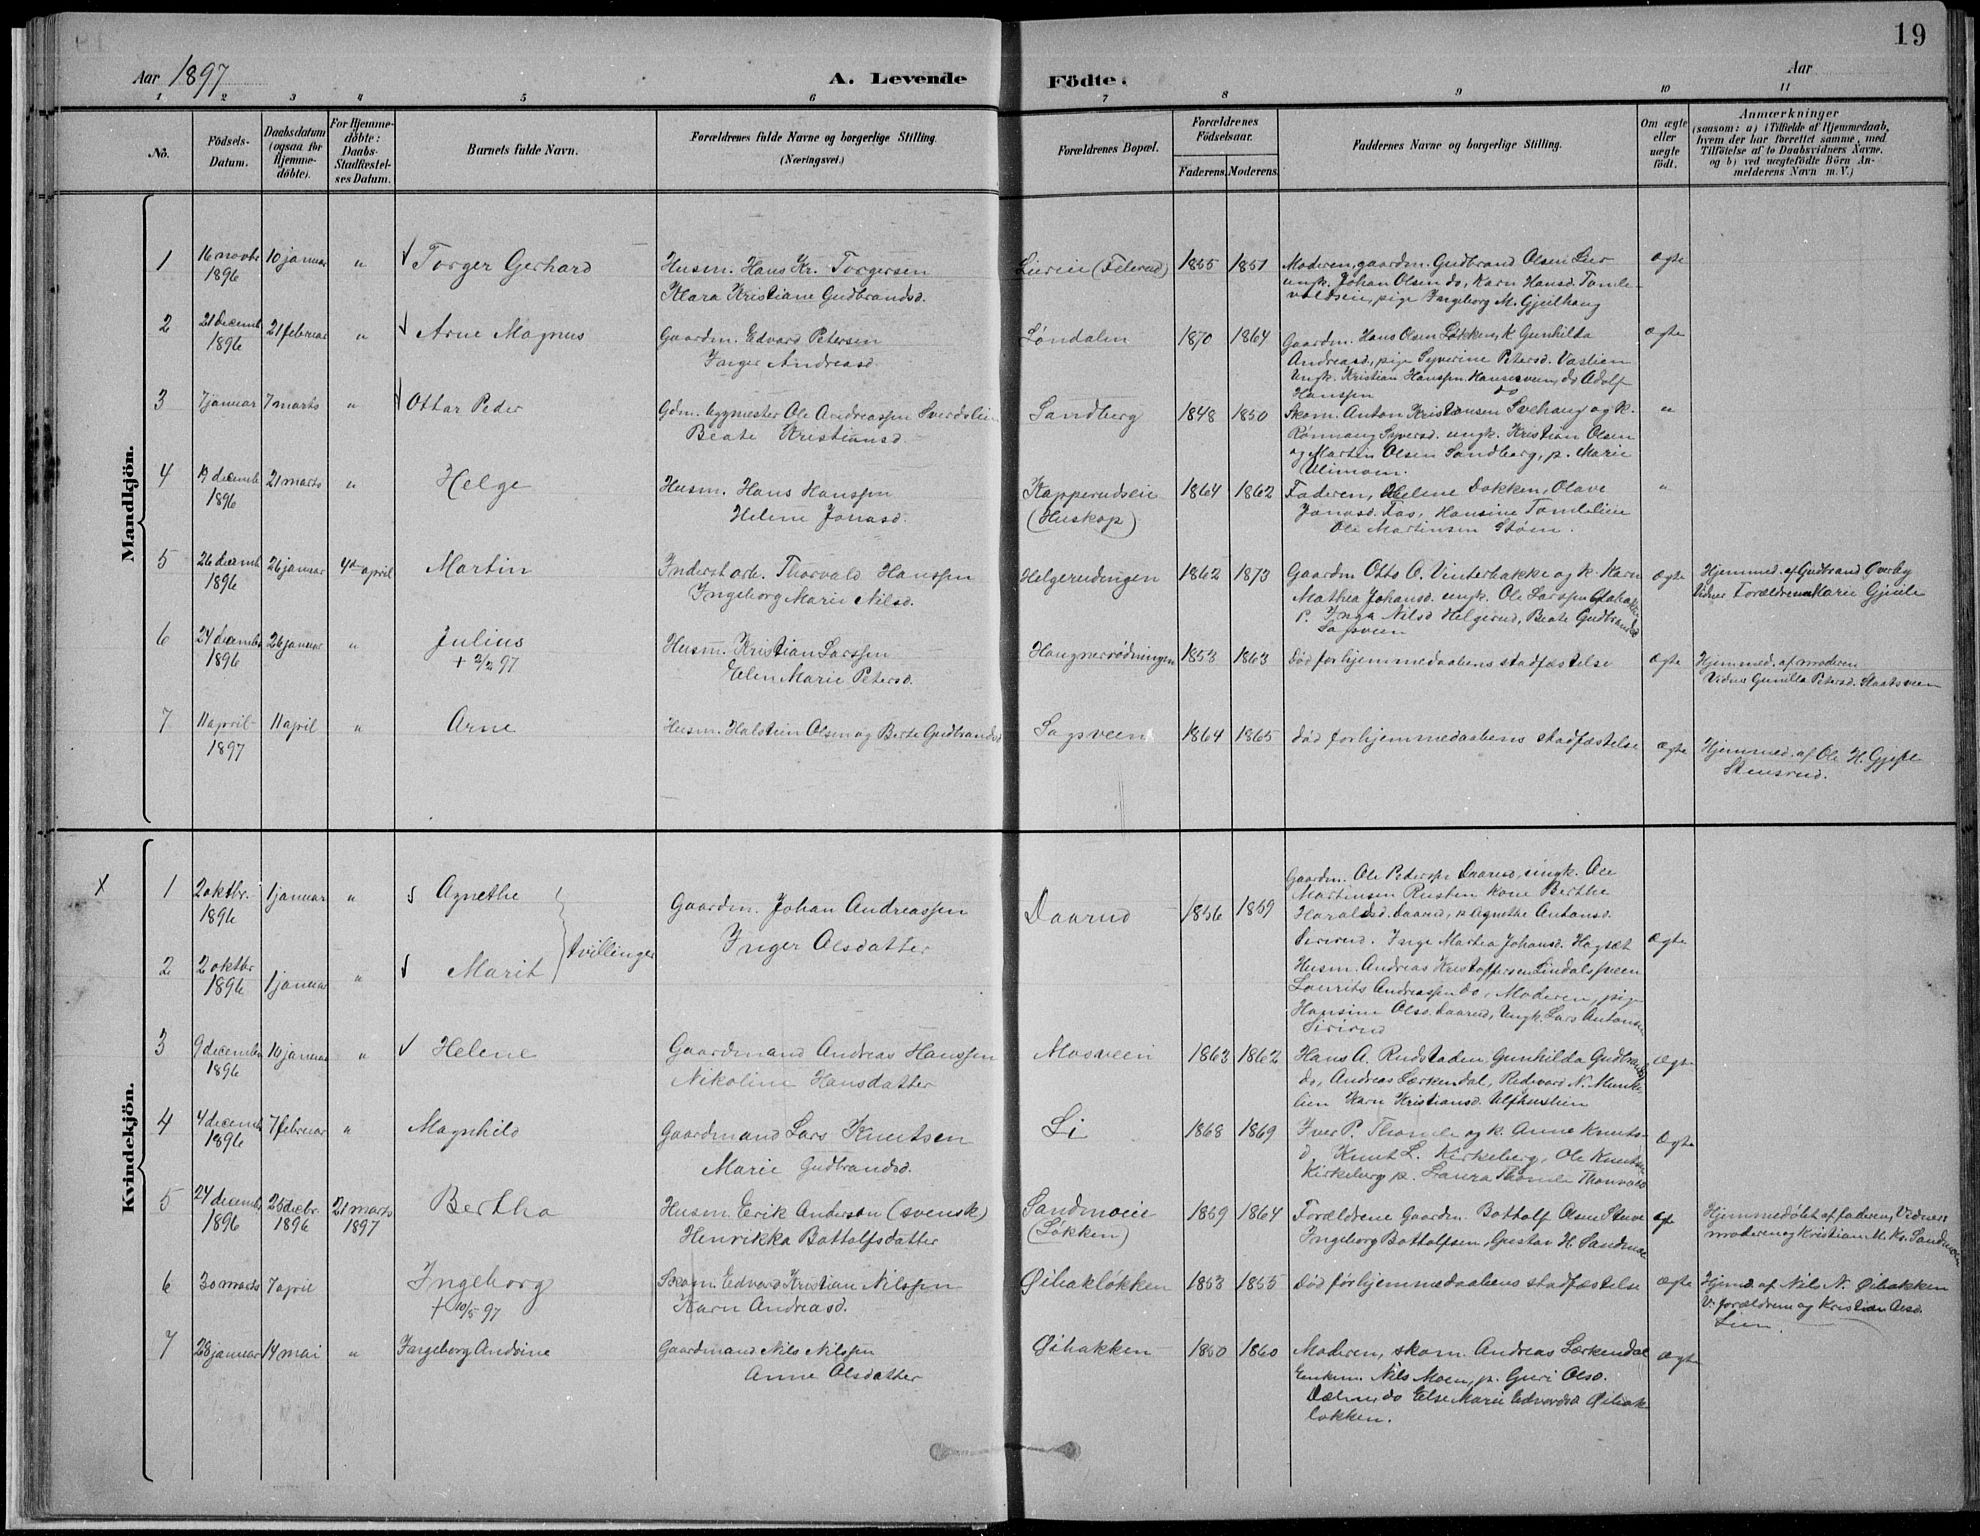 19
Aar 1897
A. Levende
Födte.
Aar
1 2 3 4 5 6 7 8 9 10 11
No.
Födsels-Datum.
Daabsdatum (ogsaa for Hjemme-döbte).
For Hjemme-döbte: Daabs-Stadfæstel-ses Datum.
Barnets fulde Navn.
Forældrenes fulde Navne og borgerlige Stilling. (Næringsvei.)
Forældrenes Bopæl.
Forældrenes Födselsaar.
Faderens. Moderens.
Faddernes Navne og borgerlige Stilling.
Om ægte eller uægte födt.
Anmærkninger
(saasom: a) i Tilfælde af Hjemmedaab, hvem der har forrettet samme, med Tilföielse af to Daabsvidners Navne, og b) ved uægtefödte Börn An-melderens Navn m. V.)
Mandkjön.
1 16 novbr 1896 10 januar " Torger Gerhard
Husm. Hans Kr. Torgersen
Klara Kristiane Gudbrandsd.
Liereie 1855 1851
Moderen, gaardm. Gudbrand Olsen Lier
ungk. Johan Olsen do, Karn Hansd. Tomle-
voldsen, pige Ingeborg M. Gjeilhaug
ægte
2 21 decemb 1896 21 februar " Arne Magnus
Gaardm. Edvard Petersen
Inger Andreasd.
Løndalen 1870 1864
Gaardm. Hans Olsen Løkken, K Gunhilda
Andreasd., pige Syverine Petersd. Vastien
Ungk. Kristian Hanssen Hansesveen, do Adolf
Hanssen do
ægte
3 7 januar 7 marts " Ottar Peder
Gdm. bygmester Ole Andreassen
Beate Kristiansd.
Sandberg 1848 1850
Skom. Anton Kristiansen Svehaug og k.
Rønnaug Syversd. ungk. Kristian Olsen
og Martin Olsen Sandberg, p. Marie
Ulimoen.
"
4 19 decemb 1896 21 marts " Helge
Husm. Hans Hanssen
Helene Jonasd.
Kapperudseie
(Huskop) 1864 1862
Faderen, Helene Dokken, Olave
Jonasd. Fos, Hansine Tomlelien
Ole Martinsen Støen.
"
5 26 decemb 1896 26 januar 4de april Martin
Inderst arb. Thorvald Hanssen
Ingeborg Marie Nilsd.
Helgerudengen 1862 1873
Gaardm Otto O. Vinterbakke og k. Karn
Mathea Johansd. ungk. Ole Larssen
p. Inga Nilsd Helgerud, Beate Gudbrandsd
Sagsveen
ægte
Hjemmed. af Gudbrand Øverby
Vidner Forældrene Marie Gjeile
6 24 decembr 1896 26 januar " Julius
+ 2/2 97
Husm. Kristian Larssen
Elen Marie Petersd.
Haugnerrødningen 1853 1863
Død før hjemmedaabens stadfæstelse
ægte
Hjemmed. af moderen
Vidner Gunilla Petersd. Staatsveen
7 11 april 1897 11 april " Arne
Husm. Halstein Olsen og Berte Gudbrandsd
Sagsveen 1864 1865
død før hjemmedaabens stadfæstelse
ægte
Hjemmed. af Ole H. Gjefle
Stensrud.
Kvindekjön.
X 1 2 oktbr. 1896 1 januar " Agnethe
2 2 oktbr 1896 1 januar " Marit
Tvillinger
Gaardm. Johan Andreassen
Inger Olsdatter
Daarud 1856 1859
Gaardm. Ole Pederssen Daarud, ungk. Ole
Martinsen Rusten kone Berthe
Haraldsd. Daarud, p Agnethe Antonsd.
Sirirud. Inge Martea Johansd. Hagsæt
Husm. Andreas Kristoffersen Lindalsveen
Laurits Andreassen do, Moderen, pige
Hansine Olsd. Daarud, Ungk. Lars Antonsen
Sirirud
ægte
3 9 decembr 1896 10 januar " Helene
Gaardmand Andreas Hanssen
Nikoline Hansdatter
Mosveen 1863 1862
Hans A. Rudstaden, Gunhilda Gudbrandsd
do, Andreas Lærkendal, Redevard N. Munke-
lien Karn Kristiansd.
ægte
4 4 decemb 1896 7 februar " Magnhild
Gaardmand Lars Knutsen
Marie Gudbrandsd.
Li 1868 1869
Iver P. Thomle og k. Anne Knuts-
d, Knut L. Kirkeberg, Ole Knutsen
Kirkeberg p. Laura Thomle
ægte
5 24 decembr 1896 25 decbr. 1896 21 marts 1897 Bertha
Husm. Erik Anderson (svensk)
Henrikka Bottolfsdatter
Sandmoeie
(Løkken) 1859 1864
Forældrene Gaardm. Bottolf Olsen Stuve
Ingeborg Bottolfsen, Gustav H. Sandmoe
Hjemmedøbt af faderen, Vidner
moderen og Kristian M. Kr. Sandmoen
6 30 marts 7 april Ingeborg
+ 10/5 97
Skom. Edvard Kristian Nilssen
Karn Andreasd.
Øibakløkken 1853 1855
Død før hjemmedaabens stadfæstelse
ægte
Hjemd. af Nils N. Øibakken
V. forældrene og Kristian Olsd.
Lien.
7 28 januar 14 mai " Ingeborg Andrine
Gaardmand Nils Nilssen
Anne Olsdatter
Øibakken 1850 1860
Moderen, skom. Andreas Lærkendal
Enkem. Nils Moen, p. Guri Olsd.
Dælen, do Else Marie Edvardsd Øibak-
løkken.
ægte